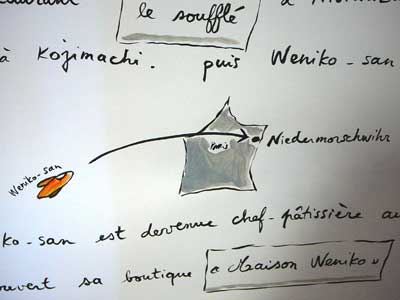 le soufflé
à Kojimachi. puis Weniko-san
Paris
Niedermorschwihr
Weniko-san
ko-san est dervenue chef-pâtissière au
ouvert sa boutique « Maison Weniko »